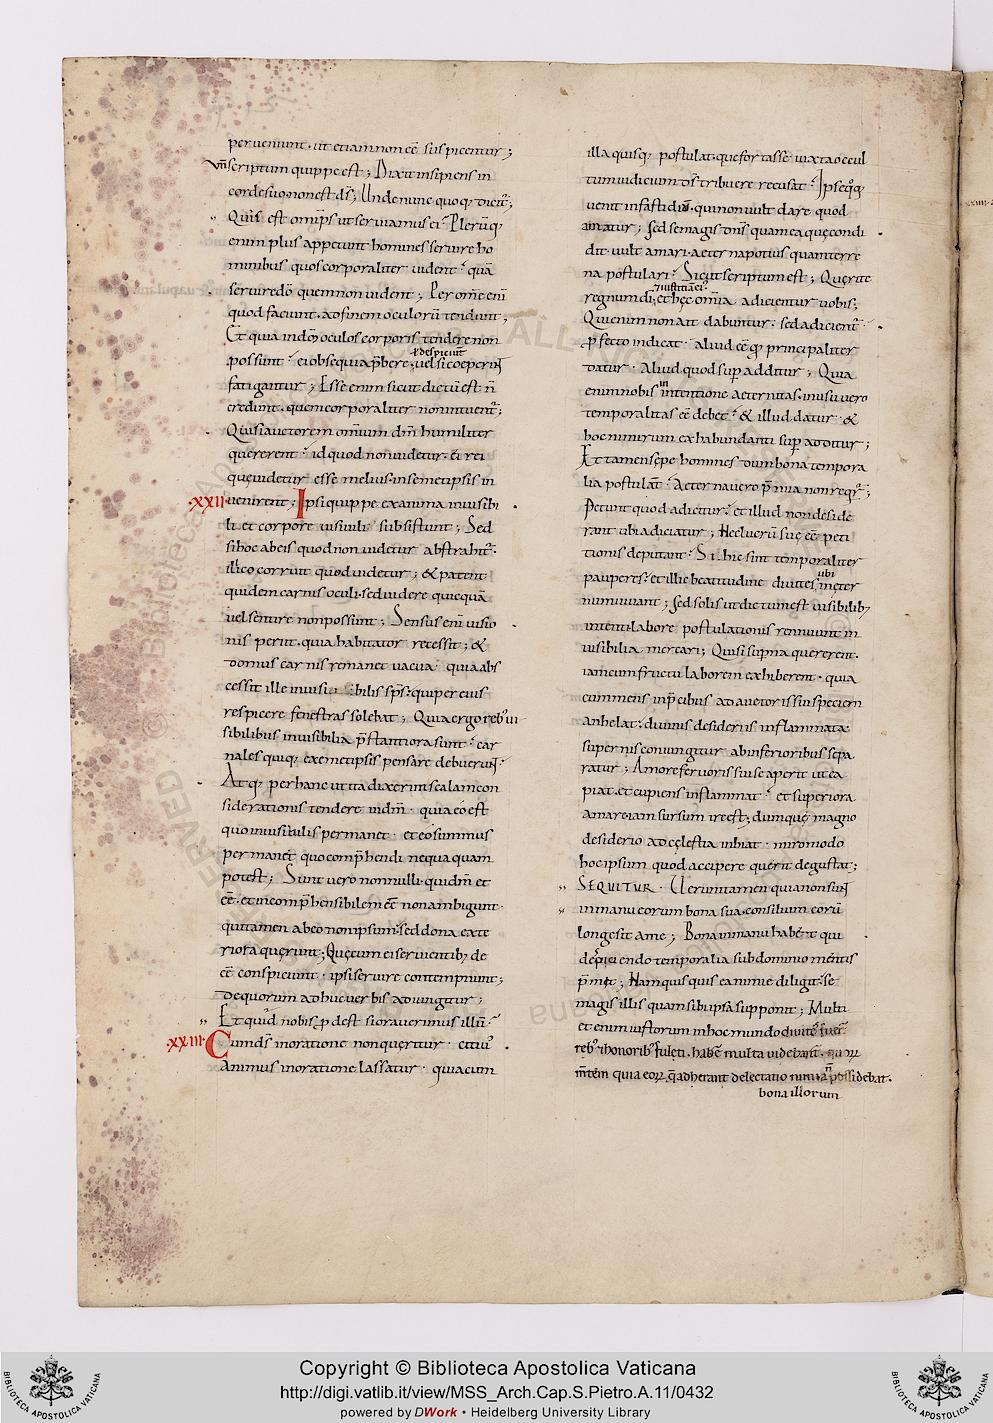 perueniunt. ut etiam non eē suspicentur;
Vn̄ scriptum quippe est; Dixit insipiens in
corde suo non est dſ; Unde nunc quoq; dicit̄;
Quis est omīps ut seruiamus ei? Pleruq;
enim plus appetunt homines seruire ho
minibus quos corporaliter uident. quā
seruire dō quem non uident; Per om̄e enī
quod faciunt. ad finem oculorū tendunt;
Et quia in dm̄ oculos corporis tendere non
possunt. ei obsequia p̄bere, uel despiciunt uel si coeperint
fatigantur; Esse enim sicut dictū est n̄
credunt. quem corporaliter non intuent̄;
Qui si auctorem omnium dm̄ humiliter
quererent. id quod non uidetur. ei rei
quę uidetur esse melius. in semetipsis in
·XXII· uenirent; Ipsi quippe ex anima inuisibi
li et corpore uisiuili subsistunt; Sed
si hoc ab eis quod non uidetur abstrahit̄.
illico corruit quod uidetur; & patent
quidem carnis oculi. sed uidere quicquā
uel sentire non possunt; Sensus enī uisio
nis perit. quia habitator recessit; &
domus carnis remanet uacua. quia abs
cessit ille inuisibilis sps̄. qui per eius
respicere fenestras solebat; Quia ergo reb' ui
sibilibus inuisibilia p̄stantiora sunt. car
nales quiq; ex semetipsis pensare debuerunt.
Atq; per hanc ut ita dixerim scalam con
siderationis tendere in dm̄. quia eo est
quo inuisibilis permanet. et eo summus
permanet quo comp̄hendi nequaquam
potest; Sunt uero nonnulli. qui dm̄ et
eē. et incomp̄hensibilem eē non ambigunt.
qui tamen ab eo non ipsum. sed dona exte
riora querunt; Quę cum ei seruientib; de
eē conspiciunt. ipsi seruire contempnunt;
De quorum adhuc uerbis adiungitur;
Et quid nobis p̄dest si orauerimus illū.
·XXIII· Cum ds̄ in oratione non queritur. citiu'
animus in oratione lassatur. quia cum
illa quisq; postulat. quę fortasse iuxta occul
tum iudicium ds̄ tribuere recusat. Ipse q̄q;
uenit in fastidiū. qui non uult dare quod
amatur; Sed se magis dn̄s quam ea quę condi
dit uult amari. aeterna potius quam terre
na postulari. Sicut scriptum est; Querite
regnum di, et iustitiā ei' et hęc omīa adicientur uobis;
Qui enim non ait dabuntur. sed adicient̄.
p̄fecto indicat. aliud eē qd̄ principaliter
datur. Aliud quod sup additur; Quia
enim nobis in intentione aeternitas. in usu uero
temporalitas eē debet. & illud datur. &
hoc nimirum ex habundanti sup additur;
Et tamen sępe homines dum bona tempora
lia postulant. aeterna uero p̄mia non reqr̄;
Petunt quod adicitur. et illud non deside
rant ubi adiciatur; Nec lucrū suę eē peti
tionis deputant. Si hic sint temporaliter
pauperes. et illic beatitudine diuites ubi in ęter
num uiuant; Sed solis ut dictum est uisibilib;
intenti. labore postulationis rennuunt in
uisibilia mercari; Qui si sup̄na quererent.
iam cum fructu laborem exhiberent. quia
cum mens in p̄cibus ad auctoris sui speciem
anhelat. diuinis desideriis inflammata
supernis coniungitur ab inferioribus sepa
ratur; Amore feruoris sui se aperit ut ca
piat. et cupiens inflammat. et superiora
amare iam sursum ire est; dumque magno
desiderio ad cęlestia inhiat. miro modo
hoc ipsum quod accipere querit degustat;
SEQUITUR. Uerumtamen quia non sunt
in manu eorum bona sua. consilium eorū
longe sit a me; Bona in manu habent qui
despiciendo temporalia sub dominio mentis
p̄munt; Nam quisquis ea nimie diligit. se
magis illis quam sibi ipsa supponit; Multi
et enim iustorum in hoc mundo diuites fuer̄
reb' & honorib' fulti. habere multa uidebant̄.
mtem quia eoꝝ, q̄ adherant delectatio nimia n̄ possidebat.
bona illorum
Copyright © Biblioteca Apostolica Vaticana
http://digi.vatlib.it/view/MSS_Arch.Cap.S.Pietro.A.11/0432
powered by DWork • Heidelberg University Library
BIBLIOTECA APOSTOLICA VATICANA
BIBLIOTECA APOSTOLICA VATICANA